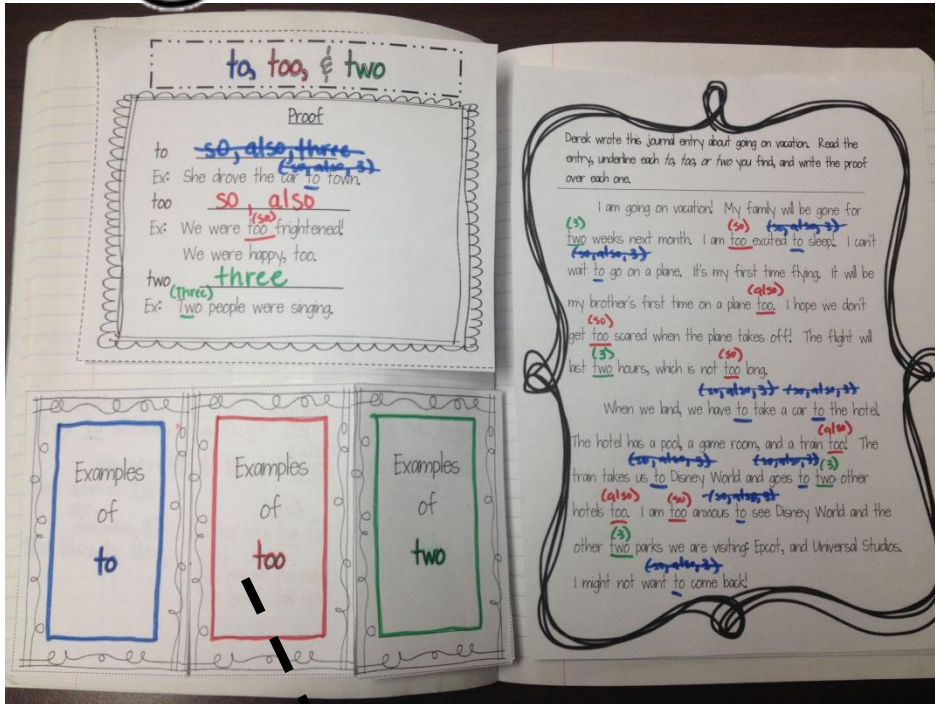 to, too, & two
Proof
to so, also, three
(so, also, 3)
Ex: She drove the car to town.
too so, also
(so)
Ex: We were too frightened!
We were happy, too.
two three
(three)
Ex: Two people were singing.
Examples
of
to
Examples
of
too
Examples
of
two
Derek wrote this journal entry about going on vacation. Read the
entry, underline each to, too, or two you find, and write the proof
over each one.
I am going on vacation! My family will be gone for
(3) (so) (so, also, 3)
two weeks next month. I am too excited to sleep! I can't
(so, also, 3)
wait to go on a plane. It's my first time flying. It will be
(also)
my brother's first time on a plane too. I hope we don't
(so)
get too scared when the plane takes off! The flight will
(3) (so)
last two hours, which is not too long.
(so, also, 3) (so, also, 3)
When we land, we have to take a car to the hotel.
(also)
The hotel has a pool, a game room, and a train too! The
(so, also, 3) (so, also, 3) (3)
train takes us to Disney World and goes to two other
(also) (so) (so, also, 3)
hotels too. I am too anxious to see Disney World and the
(3)
other two parks we are visiting: Epcot, and Universal Studios.
(so, also, 3)
I might not want to come back!